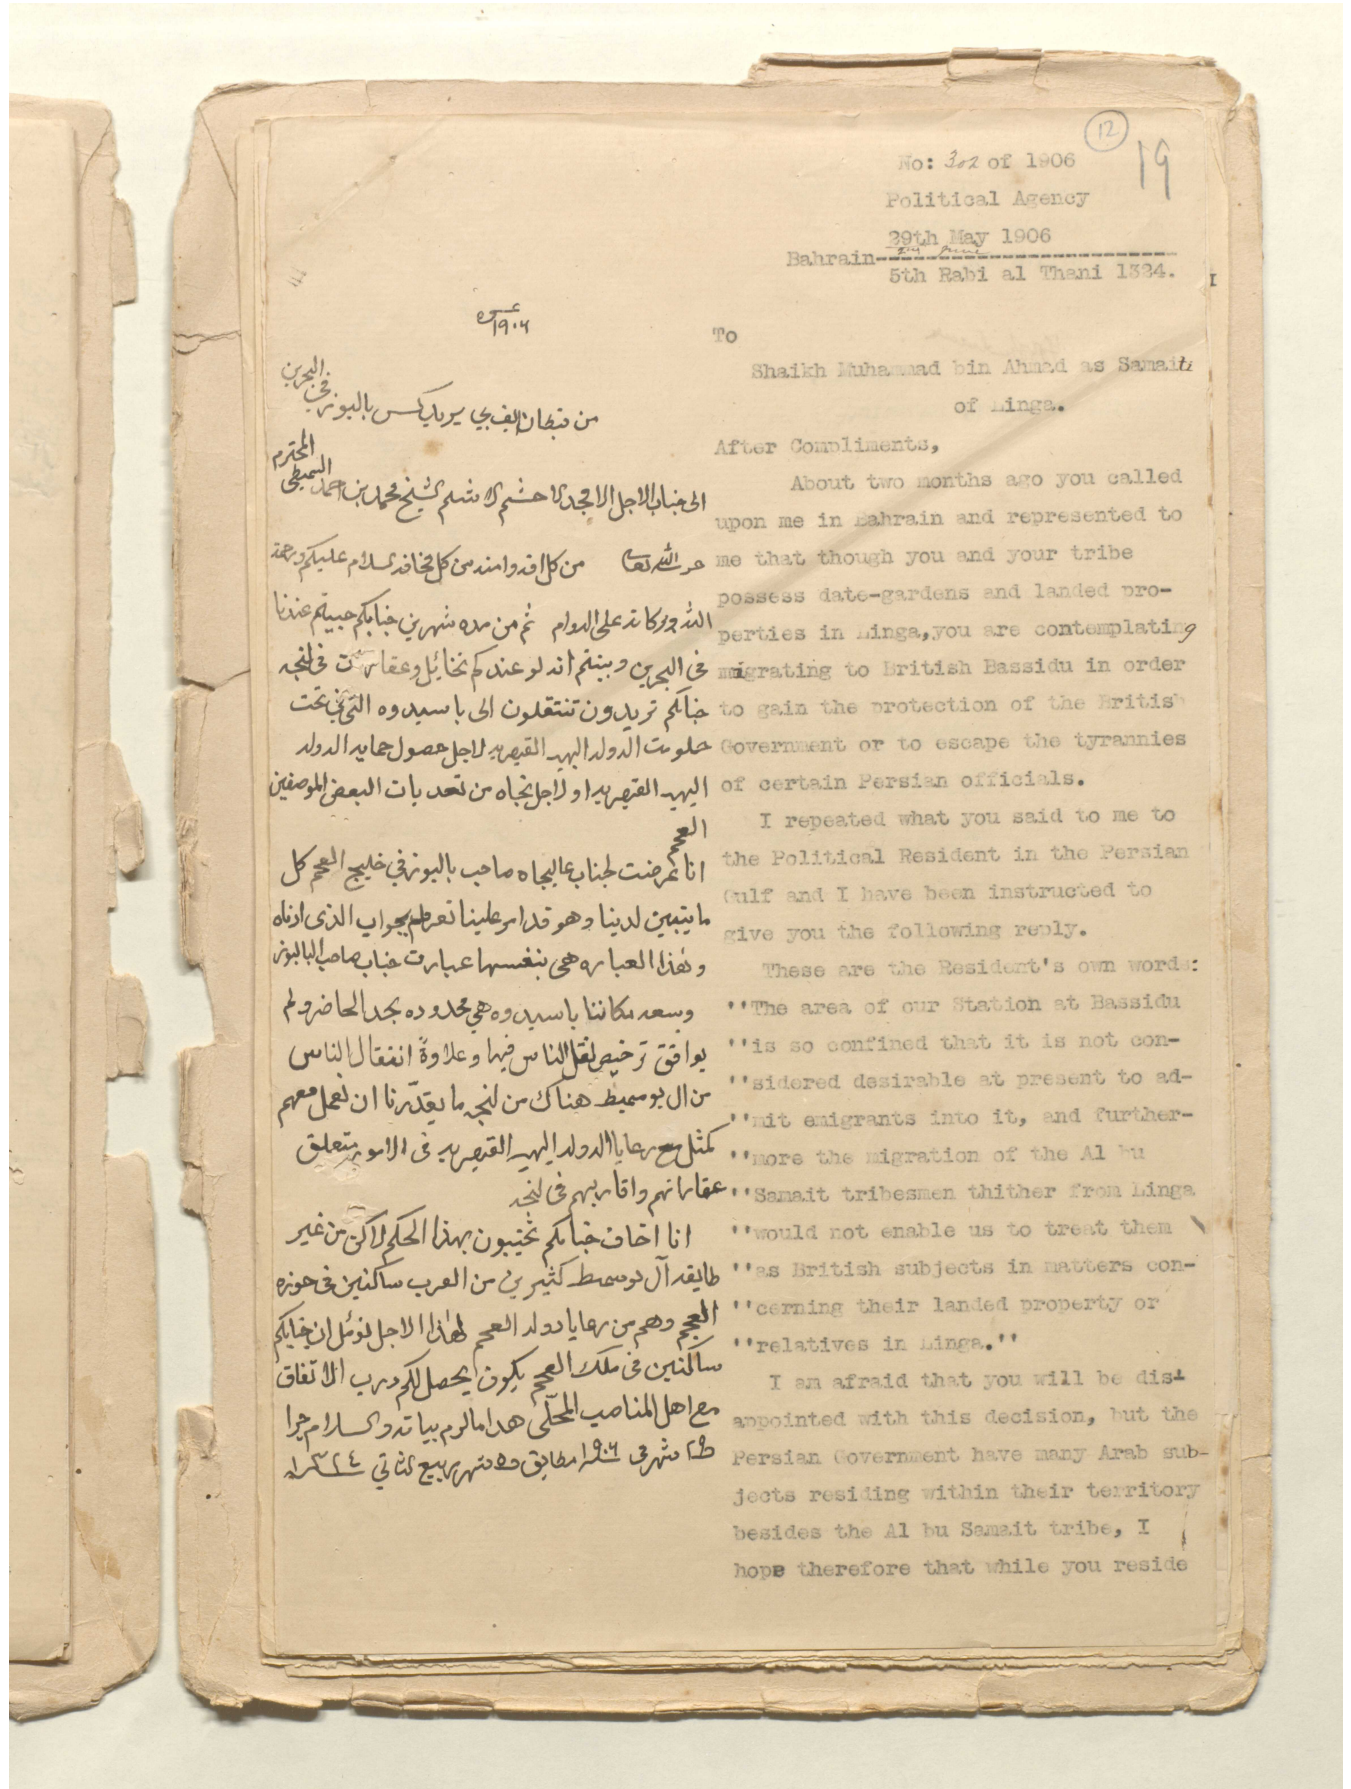 12
19
No: 302 of 1906
Political Agency
29th May 1906
2nd June
Bahrain
5th Rabi al Thani 1324.
To
Shaikh Muhammad bin Ahmad as Samaiti
of Linga.
After Compliments,
About two months ago you called
upon me in Bahrain and represented to
me that though you and your tribe
possess date-gardens and landed pro-
perties in Linga, you are contemplating
migrating to British Bassidu in order
to gain the protection of the British
Government or to escape the tyrannies
of certain Persian officials.
I repeated what you said to me to
the Political Resident in the Persian
Gulf and I have been instructed to
give you the following reply.
These are the Resident's own words:
''The area of our Station at Bassidu
''is so confined that it is not con-
''sidered desirable at present to ad-
''mit emigrants into it, and further-
''more the migration of the Al bu
''Samait tribesmen thither from Linga
''would not enable us to treat them
''as British subjects in matters con-
''cerning their landed property or
''relatives in Linga.''
I am afraid that you will be dis-
appointed with this decision, but the
Persian Government have many Arab sub-
jects residing within their territory
besides the Al bu Samait tribe, I
hope therefore that while you reside
١٩٠٦
من قبطان ايف بي بريدكس باليوز في البحرين
الى جناب الاجل الامجد الاحشم الاشيم الشيخ محمد بن احمد السميطي المحترم
من كل افه وامنه من كل مخافه السلام عليكم ورحمة
الله وبركاته على الدوام ثم من مده شهرين جنابكم جيتم عندنا
في البحرين وبينتم انه لو عندكم نخائيل وعقارات في لنجه
جنابكم تريدون تنتقلون الى باسيدوه التي هي تحت
حكومت الدوله البهيه القيصريه لاجل حصول حمايه الدوله
البهيه القيصريه او لاجل نجاه من تعديات البعض الموصفين
العجم
انا عرضت لجناب عاليجاه صاحب باليوز في خليج العجم كل
ما يتبين لدينا وهو قد امر علينا نعرفكم بجواب الذي ادناه
وهذا العباره هي بنفسها عبارت جناب صاحب الباليوز
وسعه مكاننا باسيدوه هي محدوده بحد الحاضر ولم
يوافق ترخيص نقل الناس فيها وعلاوةً انتقال الناس
من ال بوسميط هناك من لنجه ما يقدّرنا ان نعمل معهم
كمثل مع رعايا الدوله البهيه القيصريه في الامور يتعلق
عقاراتهم واقاربهم في لنجه
انا اخاف جنابكم تخيبون بهذا الحكم لاكن من غير
طايفه آل بوسميط كثيرين من العرب ساكنين في حوزه
العجم وهم من رعايا دوله العجم لهذا الاجل نوئمل ان جنابكم
ساكنين في ملك العجم يكون يحصل لكم درب الاتفاق
مع اهل المناصب المحلّى هذا ما لزم بيانه والسلام حررا
٢٩ شهر مي ١٩٠٦ مطابق ٥ شهر ربيع الثاني ١٣٢٤